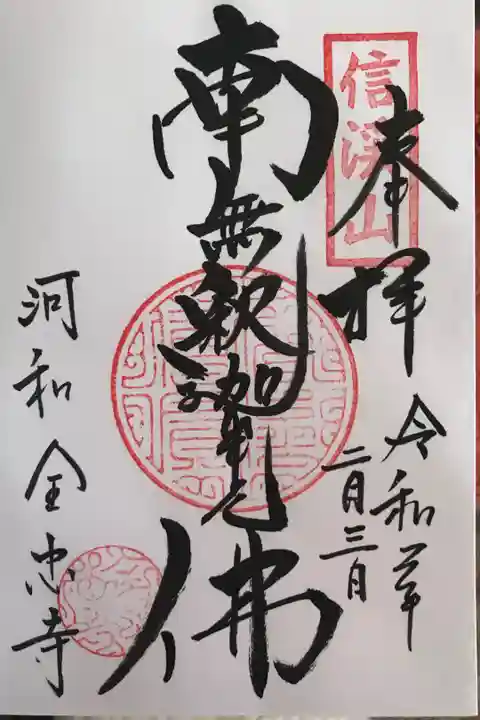 奉拝
信溪山
令和二年
二月三日
南無釈迦牟尼佛
河和全忠寺